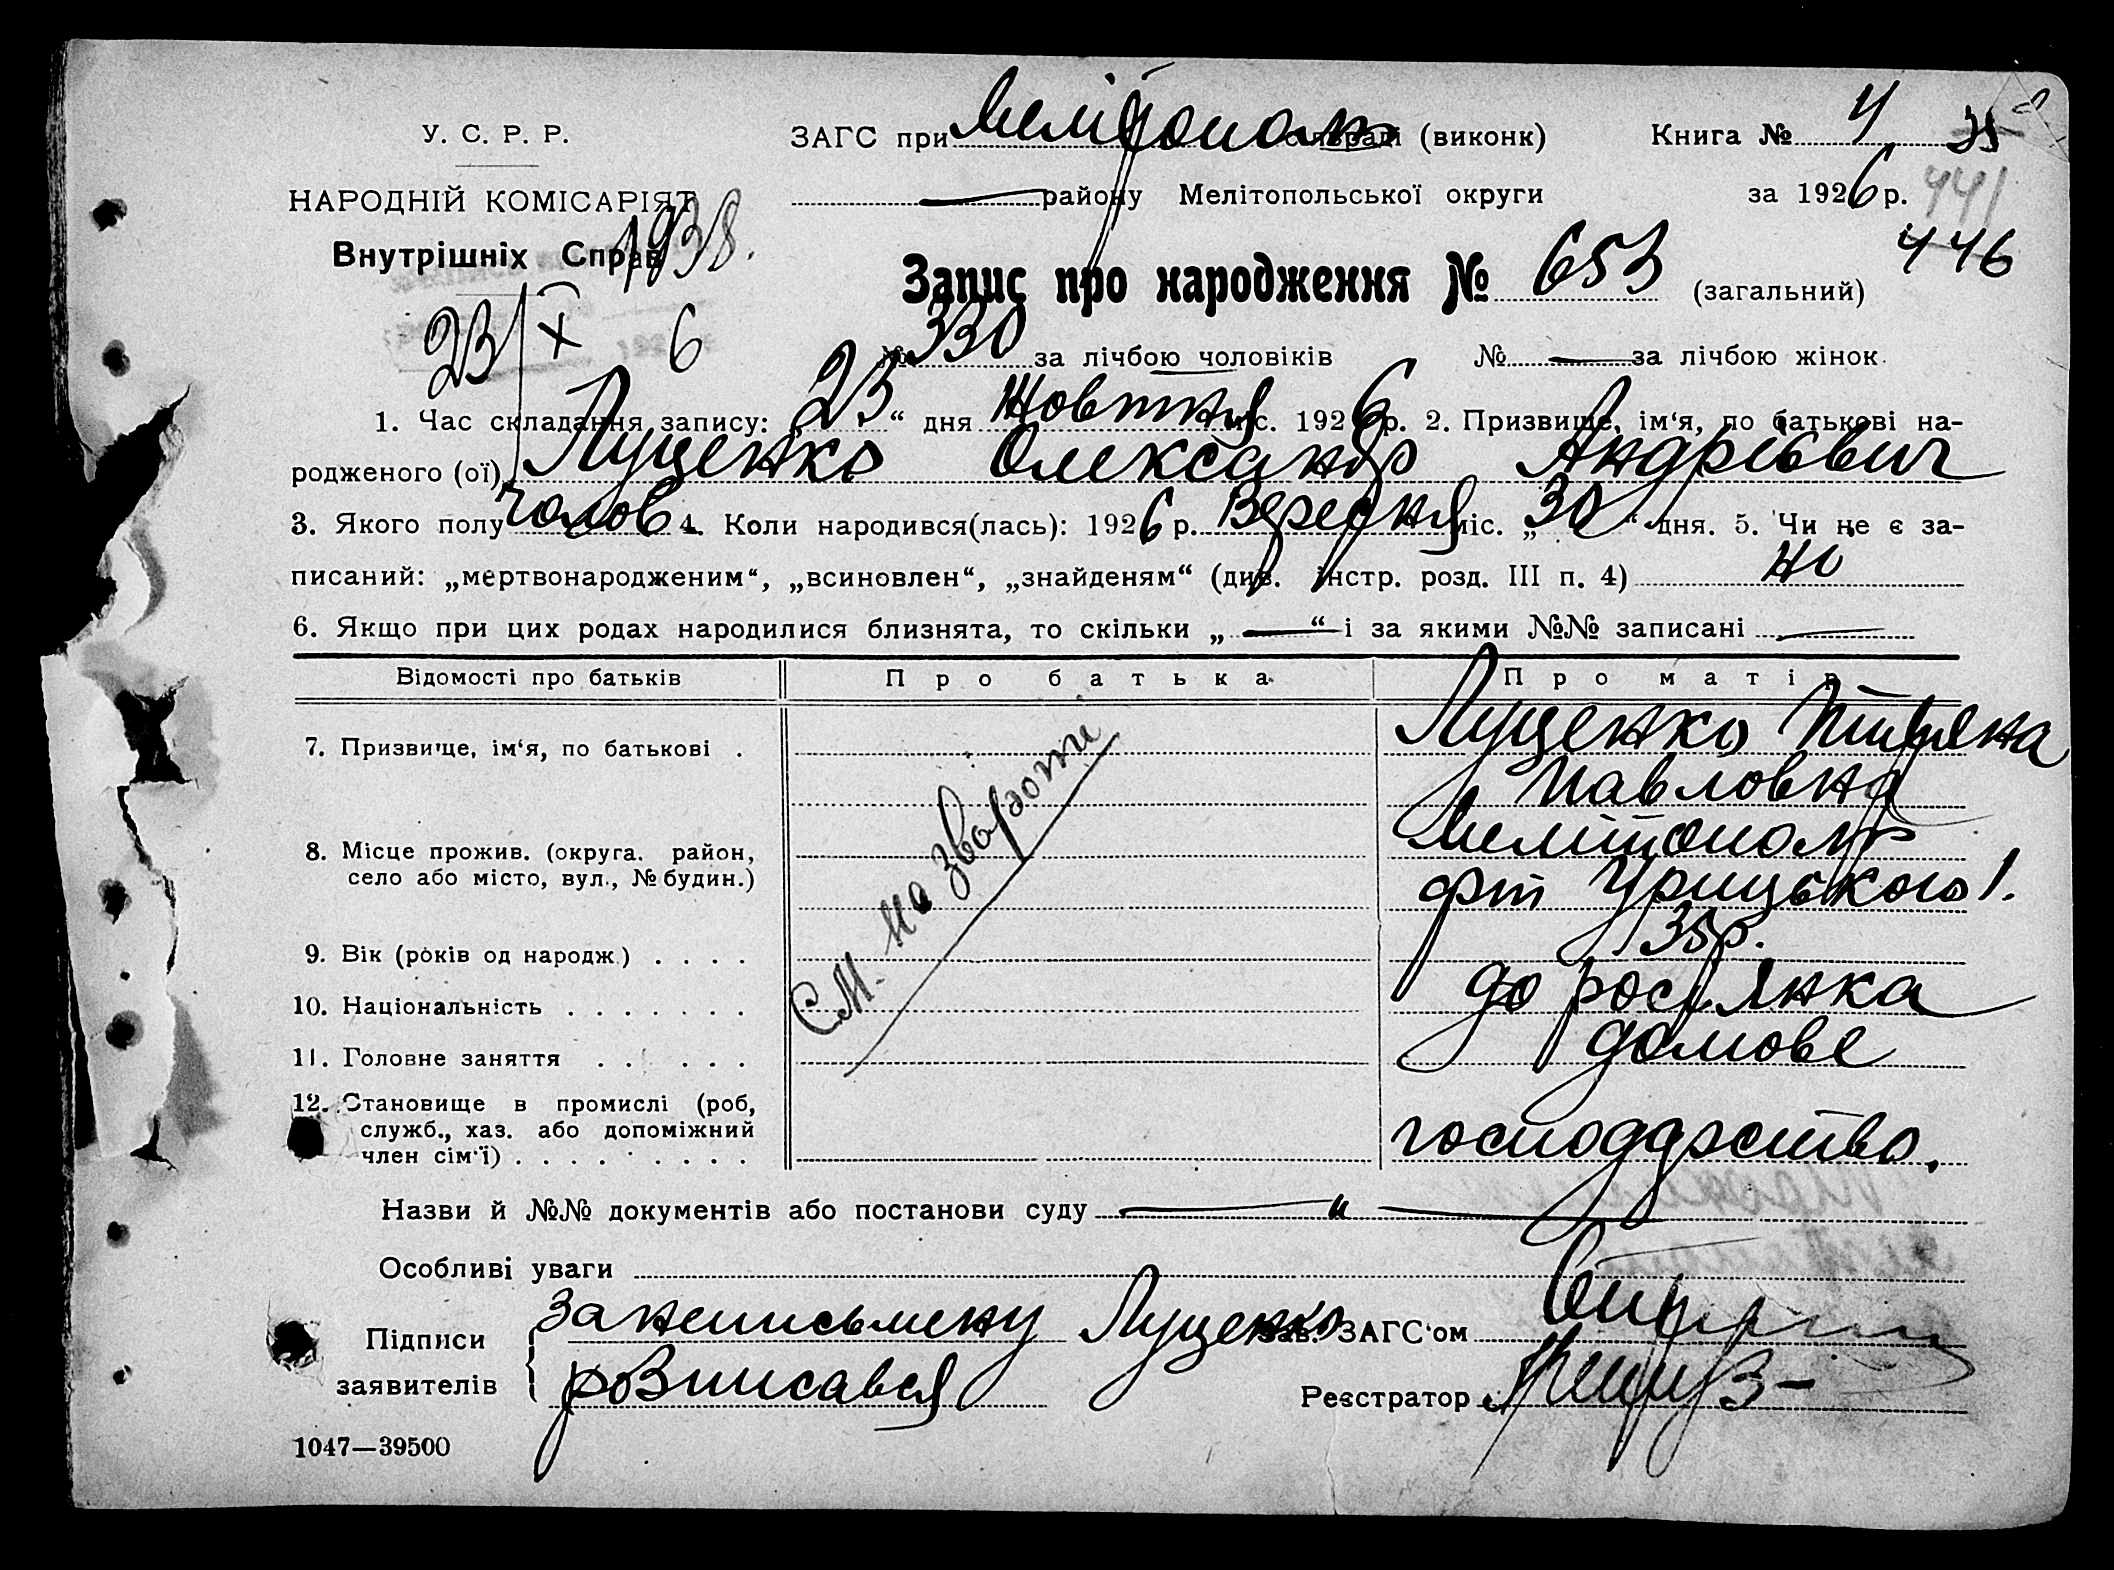 У. С. Р. Р. ЗАГС при Мелітополь сільраді (виконк) Книга № 4
НАРОДНІЙ КОМІСАРІЯТ району Мелітопольської округи за 1926 р. 441
Внутрішніх Справ 1938. 446
Запис про народження № 653 (загальний)
23/X 6 № 330 за лічбою чоловіків № — за лічбою жінок
1. Час складання запису: „23“ дня Жовтня міс. 1926 р. 2. Призвище, ім‘я, по батькові на-
родженого (ої) Луценко Олександр Андрієвич
3. Якого полу чолов 4. Коли народився(лась): 1926 р. Вересня міс. „30“ дня. 5. Чи не є за-
писаний: „мертвонародженим“, „всиновлен“, „знайденям“ (див. інстр. розд. III п. 4) но
6. Якщо при цих родах народилися близнята, то скільки „—“ і за якими №№ записані —
Відомості про батьків Про батька Про матір
7. Призвище, ім‘я, по батькові . Луценко Титяна
Павловна
См. на звороті
8. Місце прожив. (округа. район, Мелітополь
село або місто, вул., № будин.) Урицького 1.
9. Вік (років од народж.) . . . . 35 р.
10. Національність . . . . . . . до росіянка
11. Головне заняття . . . . . . домове
12. Становище в промислі (роб,
служб., хаз. або допоміжний господарство.
член сім‘ї) . . . . . . . . .
Назви й №№ документів або постанови суду — " —
Особливі уваги
Підписи За неписьмену Луценко Зав. ЗАГС‘ом
заявителів розписався Реєстратор
1047—39500